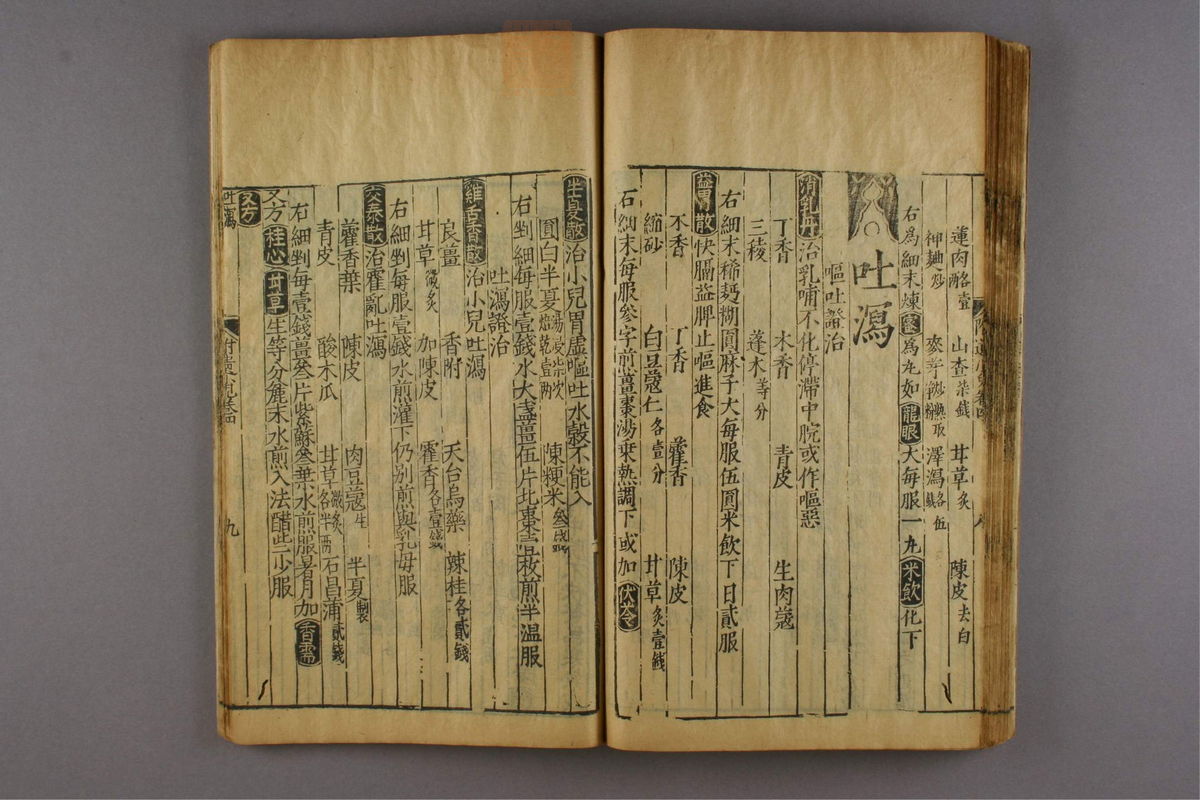 蓮肉 山查柒錢 甘草炙 陳皮去白
神麯炒 麥芽炒 澤瀉
右為細末煉蜜為丸如龍眼大每服一丸米飲化下
吐瀉
嘔吐證治
消乳丹治乳哺不化停滯中脘或作嘔惡
丁香 木香 青皮 生肉蔻
三稜 蓬木等分
右細末稀麪糊圓麻子大每服伍圓米飲下日貳服
益胃散快膈益脾止嘔進食
木香 丁香 藿香 陳皮
縮砂 白豆蔻仁各壹分 甘草炙壹錢
右細末每服參字煎薑棗湯乗熱調下或加茯苓
半夏散治小兒胃虛嘔吐水穀不能入
圓白半夏湯浸柒次焙乾壹兩 陳粳米參錢
右剉細每服壹錢水大盞薑伍片北棗壹枚煎半温服
吐瀉證治
雞舌香散治小兒吐瀉
良薑 香附 天台烏藥 辣桂各貳錢
甘草微炙 加陳皮 藿香各壹錢
右細剉每服壹錢水煎灌下仍別煎與乳母服
交泰散治霍亂吐瀉
藿香葉 陳皮 肉豆蔻生 半夏製
青皮 酸木瓜 甘草微炙各半兩 石昌蒲貳錢
右細剉每壹錢薑參片紫蘇參葉水煎服暑月加香薷
又方桂心甘草生等分麄末水煎入法醋些少服
又方
吐瀉
九